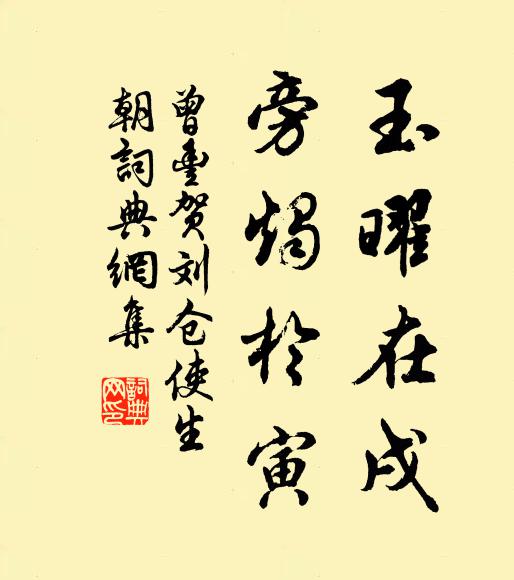 玉曜在戌
旁燭於寅
曾豊贺刘仓使生
朝詞典網集
詞典
网印